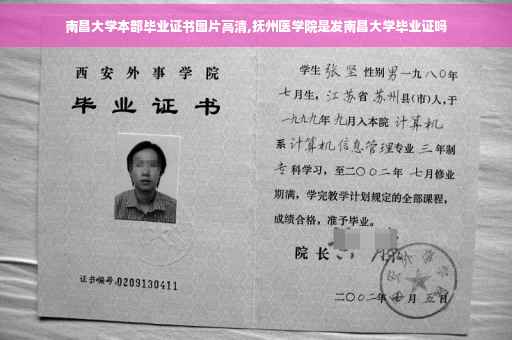 南昌大学本部毕业证书图片高清,抚州医学院是发南昌大学毕业证吗
西安外事学院
毕业证书
证书编号:0209130411
学生 张坚 性别男 一九八〇年
七月生，江苏省 苏州县(市)人，于
一九九九年 九月入本院 计算机
系 计算机信息管理专业 三 年制
专 科学习，至二〇〇二年 七月修业
期满，学完教学计划规定的全部课程，
成绩合格，准予毕业。
院长
二〇〇二年 月 五日